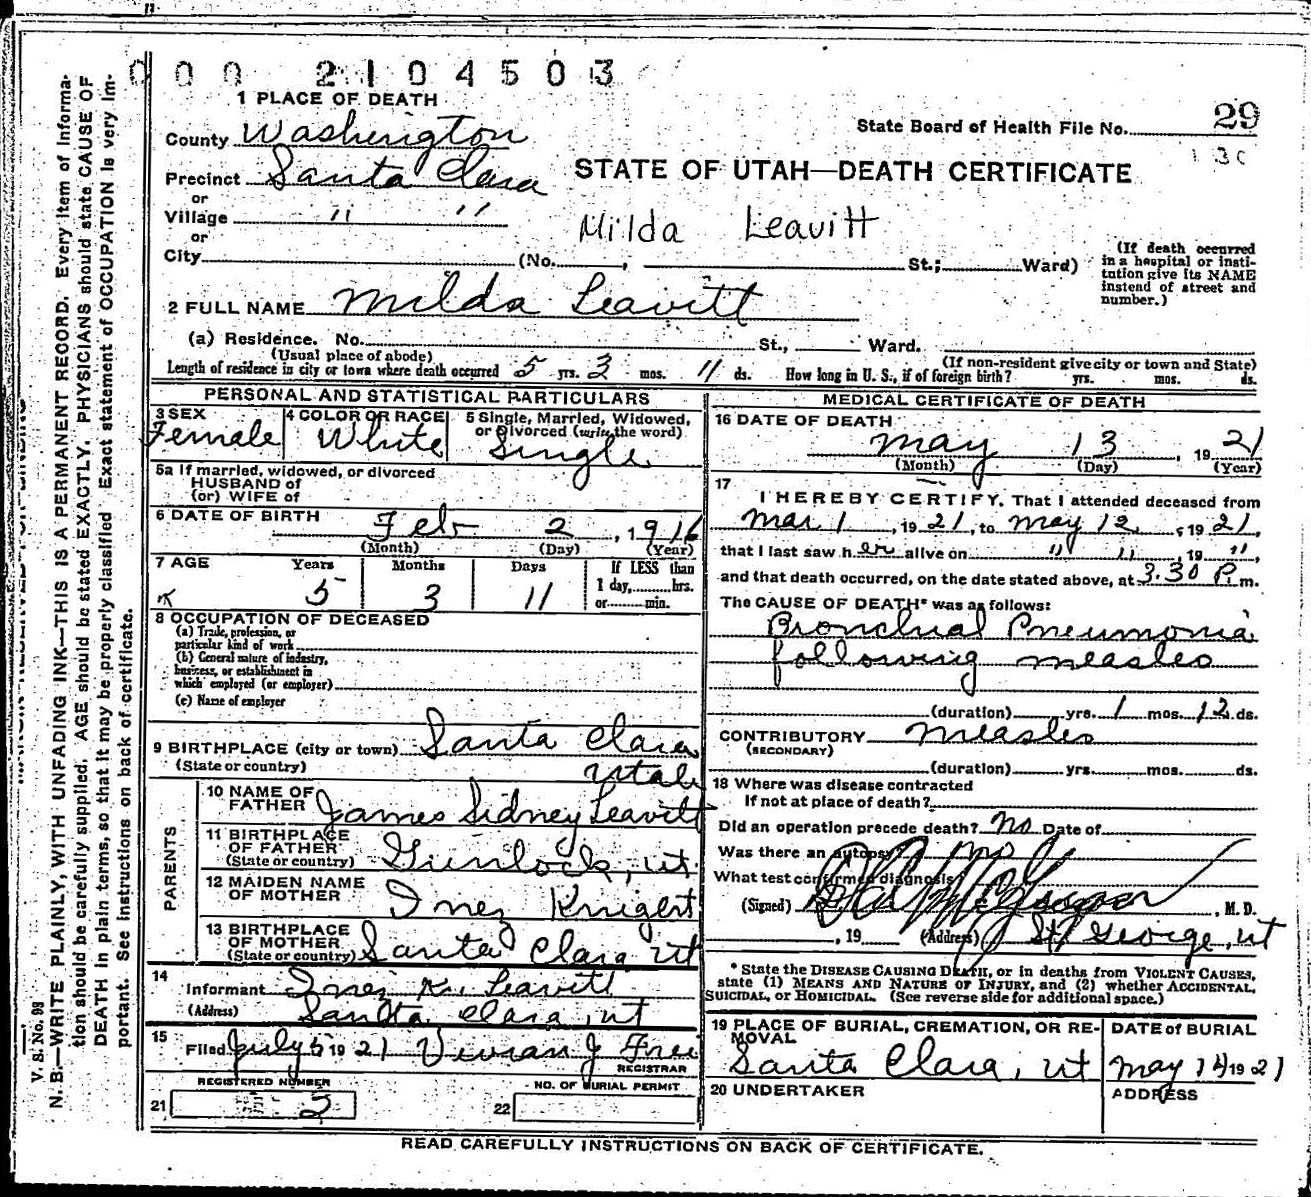 000 2104503
1 PLACE OF DEATH
County Washington
State Board of Health File No. 29
130
Precinct Santa Clara
STATE OF UTAH—DEATH CERTIFICATE
or
Village " "
Milda Leavitt
or
City (No. , St.; Ward)
(If death occurred in a hospital or insti-
tution give its NAME
instead of street and
number.)
2 FULL NAME Milda Leavitt
(a) Residence. No. St., Ward.
(Usual place of abode) (If non-resident give city or town and State)
Length of residence in city or town where death occurred 5 yrs. 3 mos. 11 ds. How long in U. S., if of foreign birth? yrs. mos. ds.
PERSONAL AND STATISTICAL PARTICULARS
3 SEX
Female
4 COLOR OR RACE
White
5 Single, Married, Widowed,
or Divorced (write the word)
Single
5a If married, widowed, or divorced
HUSBAND of
(or) WIFE of
6 DATE OF BIRTH
Feb 2, 1916
(Month) (Day) (Year)
7 AGE Years Months Days If LESS than
1 day, hrs.
or min.
5 3 11
8 OCCUPATION OF DECEASED
(a) Trade, profession, or
particular kind of work
(b) General nature of industry,
business, or establishment in
which employed (or employer)
(c) Name of employer
9 BIRTHPLACE (city or town) Santa Clara
(State or country) Utah
PARENTS
10 NAME OF
FATHER James Sidney Leavitt
11 BIRTHPLACE
OF FATHER
(State or country) Gunlock, Ut.
12 MAIDEN NAME
OF MOTHER Inez Knight
13 BIRTHPLACE
OF MOTHER
(State or country) Santa Clara Ut
14
Informant Inez K. Leavitt
(Address) Santa Clara, Ut
15
Filed July 5 1921 Vivian J Frei
REGISTRAR
REGISTERED NUMBER
21 5
NO. OF BURIAL PERMIT
22
MEDICAL CERTIFICATE OF DEATH
16 DATE OF DEATH
May 13, 1921
(Month) (Day) (Year)
17
I HEREBY CERTIFY, That I attended deceased from
Mar 1, 1921, to May 12, 1921,
that I last saw her alive on " ", 19 ",
and that death occurred, on the date stated above, at 3.30 P. m.
The CAUSE OF DEATH* was as follows:
Bronchial Pneumonia
following measles
(duration) yrs. 1 mos. 12 ds.
CONTRIBUTORY Measles
(SECONDARY)
(duration) yrs. mos. ds.
18 Where was disease contracted
If not at place of death?
Did an operation precede death? No Date of
Was there an autopsy? No
What test confirmed diagnosis?
(Signed) McGregor, M. D.
, 19 (Address) St George, Ut
* State the DISEASE CAUSING DEATH, or in deaths from VIOLENT CAUSES,
state (1) MEANS AND NATURE OF INJURY, and (2) whether ACCIDENTAL,
SUICIDAL, or HOMICIDAL. (See reverse side for additional space.)
19 PLACE OF BURIAL, CREMATION, OR RE-
MOVAL
Santa Clara, Ut
DATE of BURIAL
May 14 1921
20 UNDERTAKER
ADDRESS
READ CAREFULLY INSTRUCTIONS ON BACK OF CERTIFICATE.
V. S. No. 98
N. B.—WRITE PLAINLY, WITH UNFADING INK—THIS IS A PERMANENT RECORD. Every item of informa-
tion should be carefully supplied. AGE should be stated EXACTLY. PHYSICIANS should state CAUSE OF
DEATH in plain terms, so that it may be properly classified. Exact statement of OCCUPATION is very im-
portant. See instructions on back of certificate.